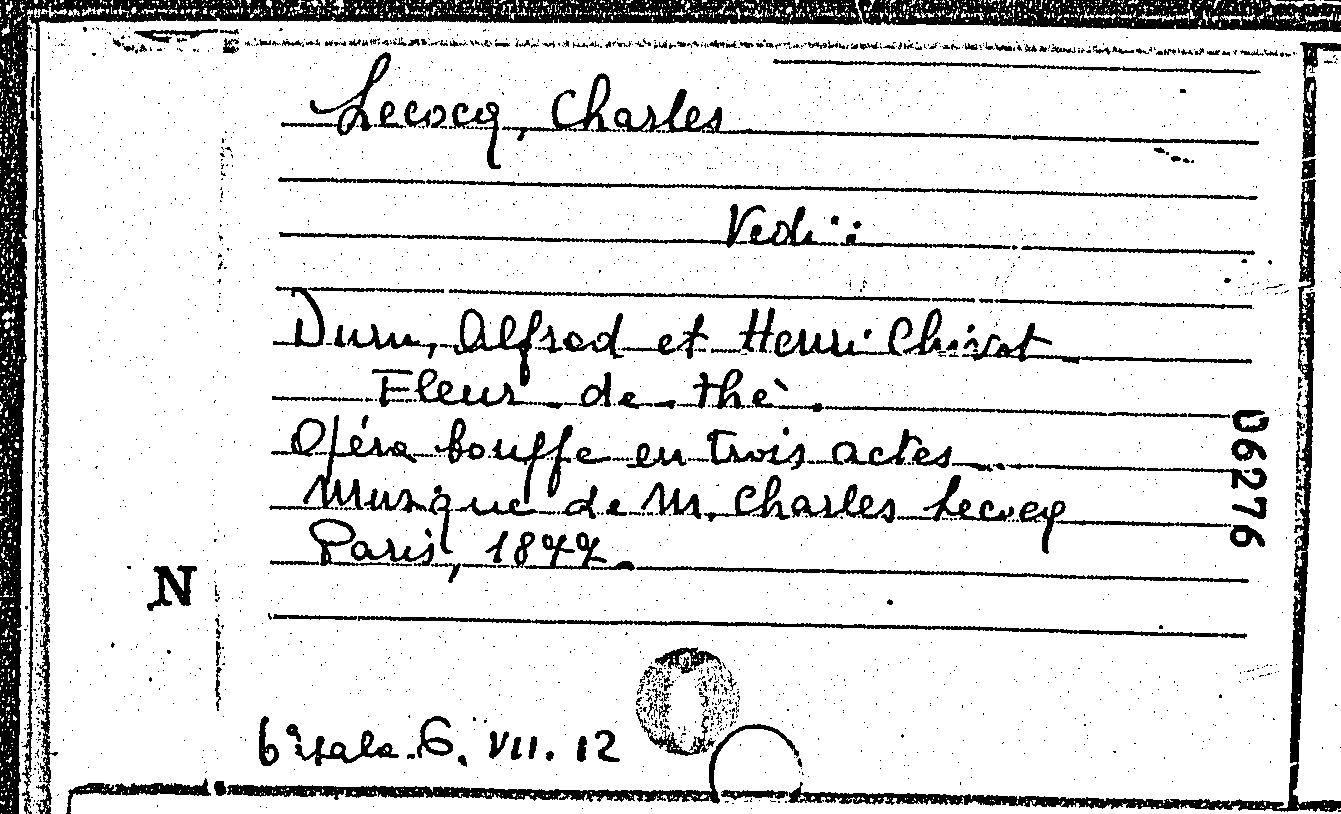 Lecocq, Charles
Vedi:
Duru, Alfred et Henri Chivot
Fleur - de - thè.
Opéra bouffe en trois actes
Musique de M. Charles Lecocq
Paris, 1877.
06276
N
6ª Sala. G. VII. 12